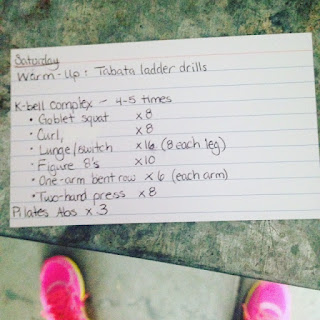 Saturday
Warm-Up: Tabata ladder drills
K-bell complex - 4-5 times
• Goblet squat x8
• Curl, x8
• Lunge/switch x16 (8 each leg)
• Figure 8's x10
• One-arm bent row x6 (each arm)
• Two-hand press x8
Pilates Abs x3